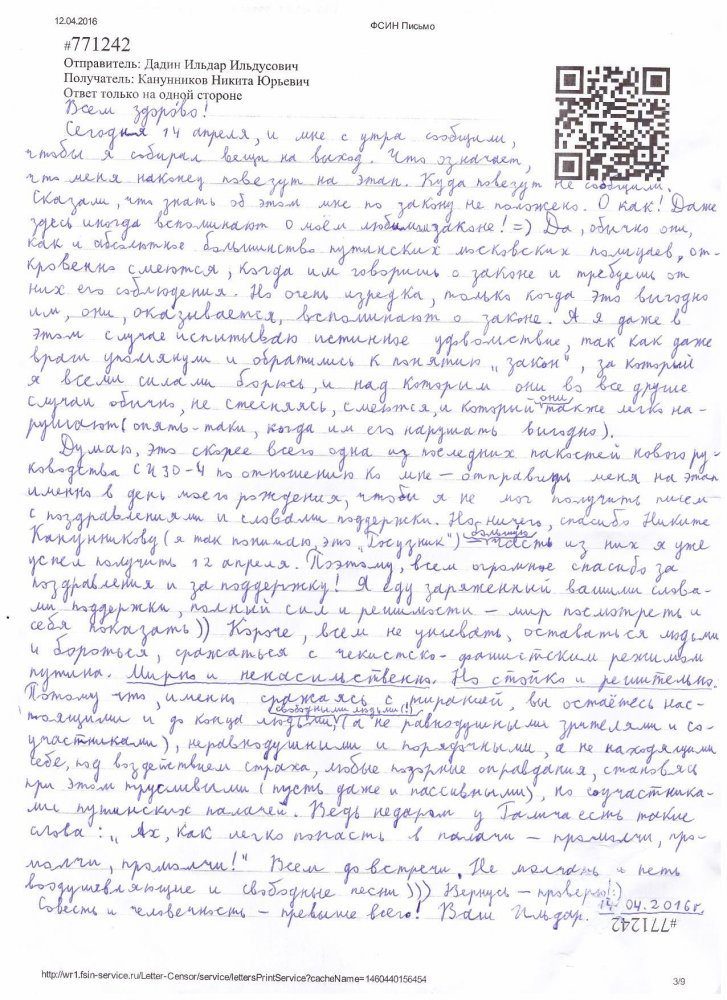 12.04.2016
ФСИН Письмо
#771242
Отправитель: Дадин Ильдар Ильдусович
Получатель: Канунников Никита Юрьевич
Ответ только на одной стороне
Всем здорóво!
Сегодня 14 апреля, и мне с утра сообщили,
чтобы я собирал вещи на выход. Что означает,
что меня наконец повезут на этап. Куда повезут не сообщили.
Сказали, что знать об этом мне по закону не положено. О как! Даже
здесь иногда вспоминают о моём любимом законе! =) Да, обычно они,
как и абсолютное большинство путинских московских полицаев, от-
кровенно смеются, когда им говоришь о законе и требуешь от
них его соблюдения. Но очень изредка, только когда это выгодно
им, они, оказывается, вспоминают о законе. А я даже в
этом случае испытываю истинное удовольствие, так как даже
враги упомянули и обратились к понятию „закон", за который
я всеми силами борюсь, и над которым они во все другие
случаи обычно, не стесняясь, смеются, и который они также легко на-
рушают (опять-таки, когда им его нарушать выгодно).
Думаю, это скорее всего одна из последних пакостей нового ру-
ководства СИЗО-4 по отношению ко мне – отправить меня на этап
именно в день моего рождения, чтобы я не мог получить писем
с поздравлениями и словами поддержки. Но, ничего, спасибо Никите
Канунникову (я так понимаю, это „Госузник") большую часть из них я уже
успел получить 12 апреля. Поэтому, всем огромное спасибо за
поздравления и за поддержку! Я еду заряженный вашими слова-
ми поддержки, полный сил и решимости – мир посмотреть и
себя показать)) Короче, всем не унывать, оставаться людьми
и бороться, сражаться с чекистско-фашистским режимом
путина. Мирно и ненасильственно. Но стойко и решительно.
Потому что, именно сражаясь с тиранией, вы остаётесь нас-
тоящими и до конца свободными людьми(!) людьми, (а не равнодушными зрителями и со-
участниками), неравнодушными и порядочными, а не находящими
себе, под воздействием страха, любые позорные оправдания, становясь
при этом трусливыми (пусть даже и пассивными), но соучастника-
ми путинских палачей. Ведь недаром у Галича есть такие
слова: „Ах, как легко попасть в палачи – промолчи, про-
молчи, промолчи!" Всем до встречи. Не молчать и петь
воодушевляющие и свободные песни))) Вернусь – проверю! :)
Совесть и человечность – превыше всего! Ваш Ильдар. 14.04.2016г.
#771242
http://wr1.fsin-service.ru/Letter-Censor/service/lettersPrintService?cacheName=1460440156454
3/9